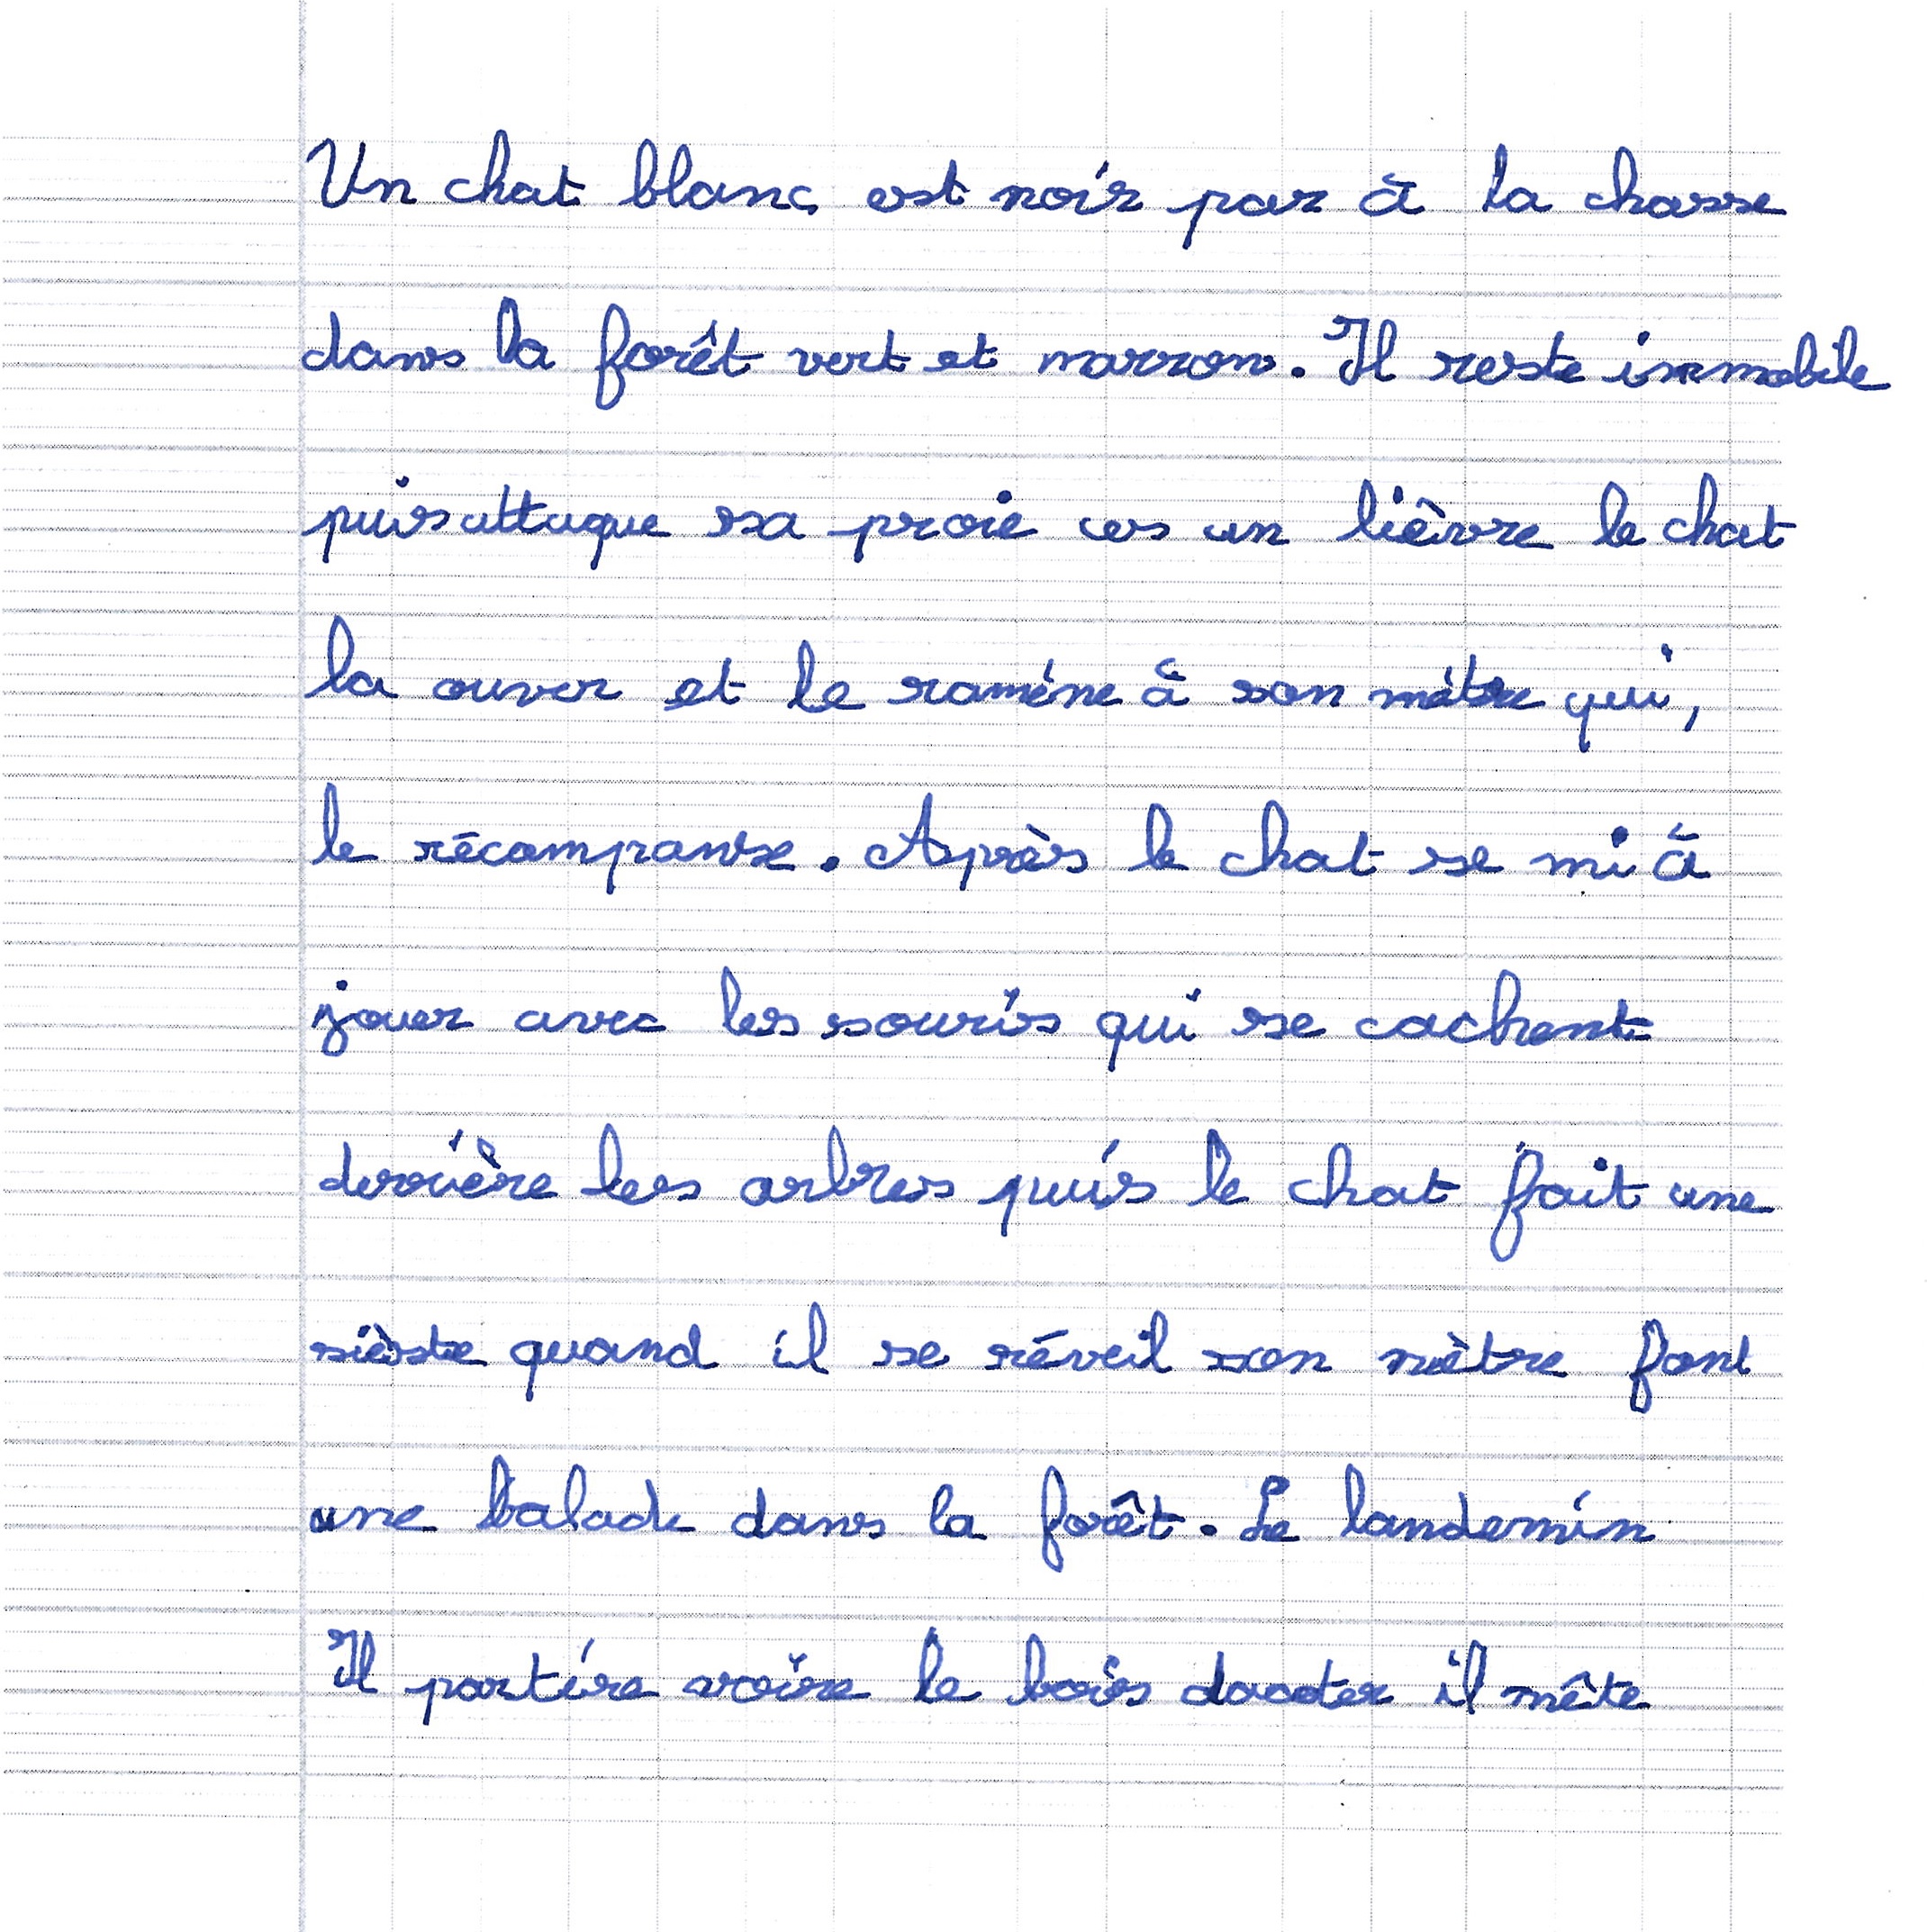 Un chat blanc est noir par à la chasse
dans la forêt vert et marron. Il reste immobile
puis attaque sa proie ces un lièvre le chat
la ouver et le ramène à son mètre qui,
le récompanse. Après le chat se mi à
jouer avec les souris qui se cachent
derrière les arbres puis le chat fait une
sièste quand il se réveil son mètre font
une balade dans la forêt. Le landemin
Il partire voire le bois il mète